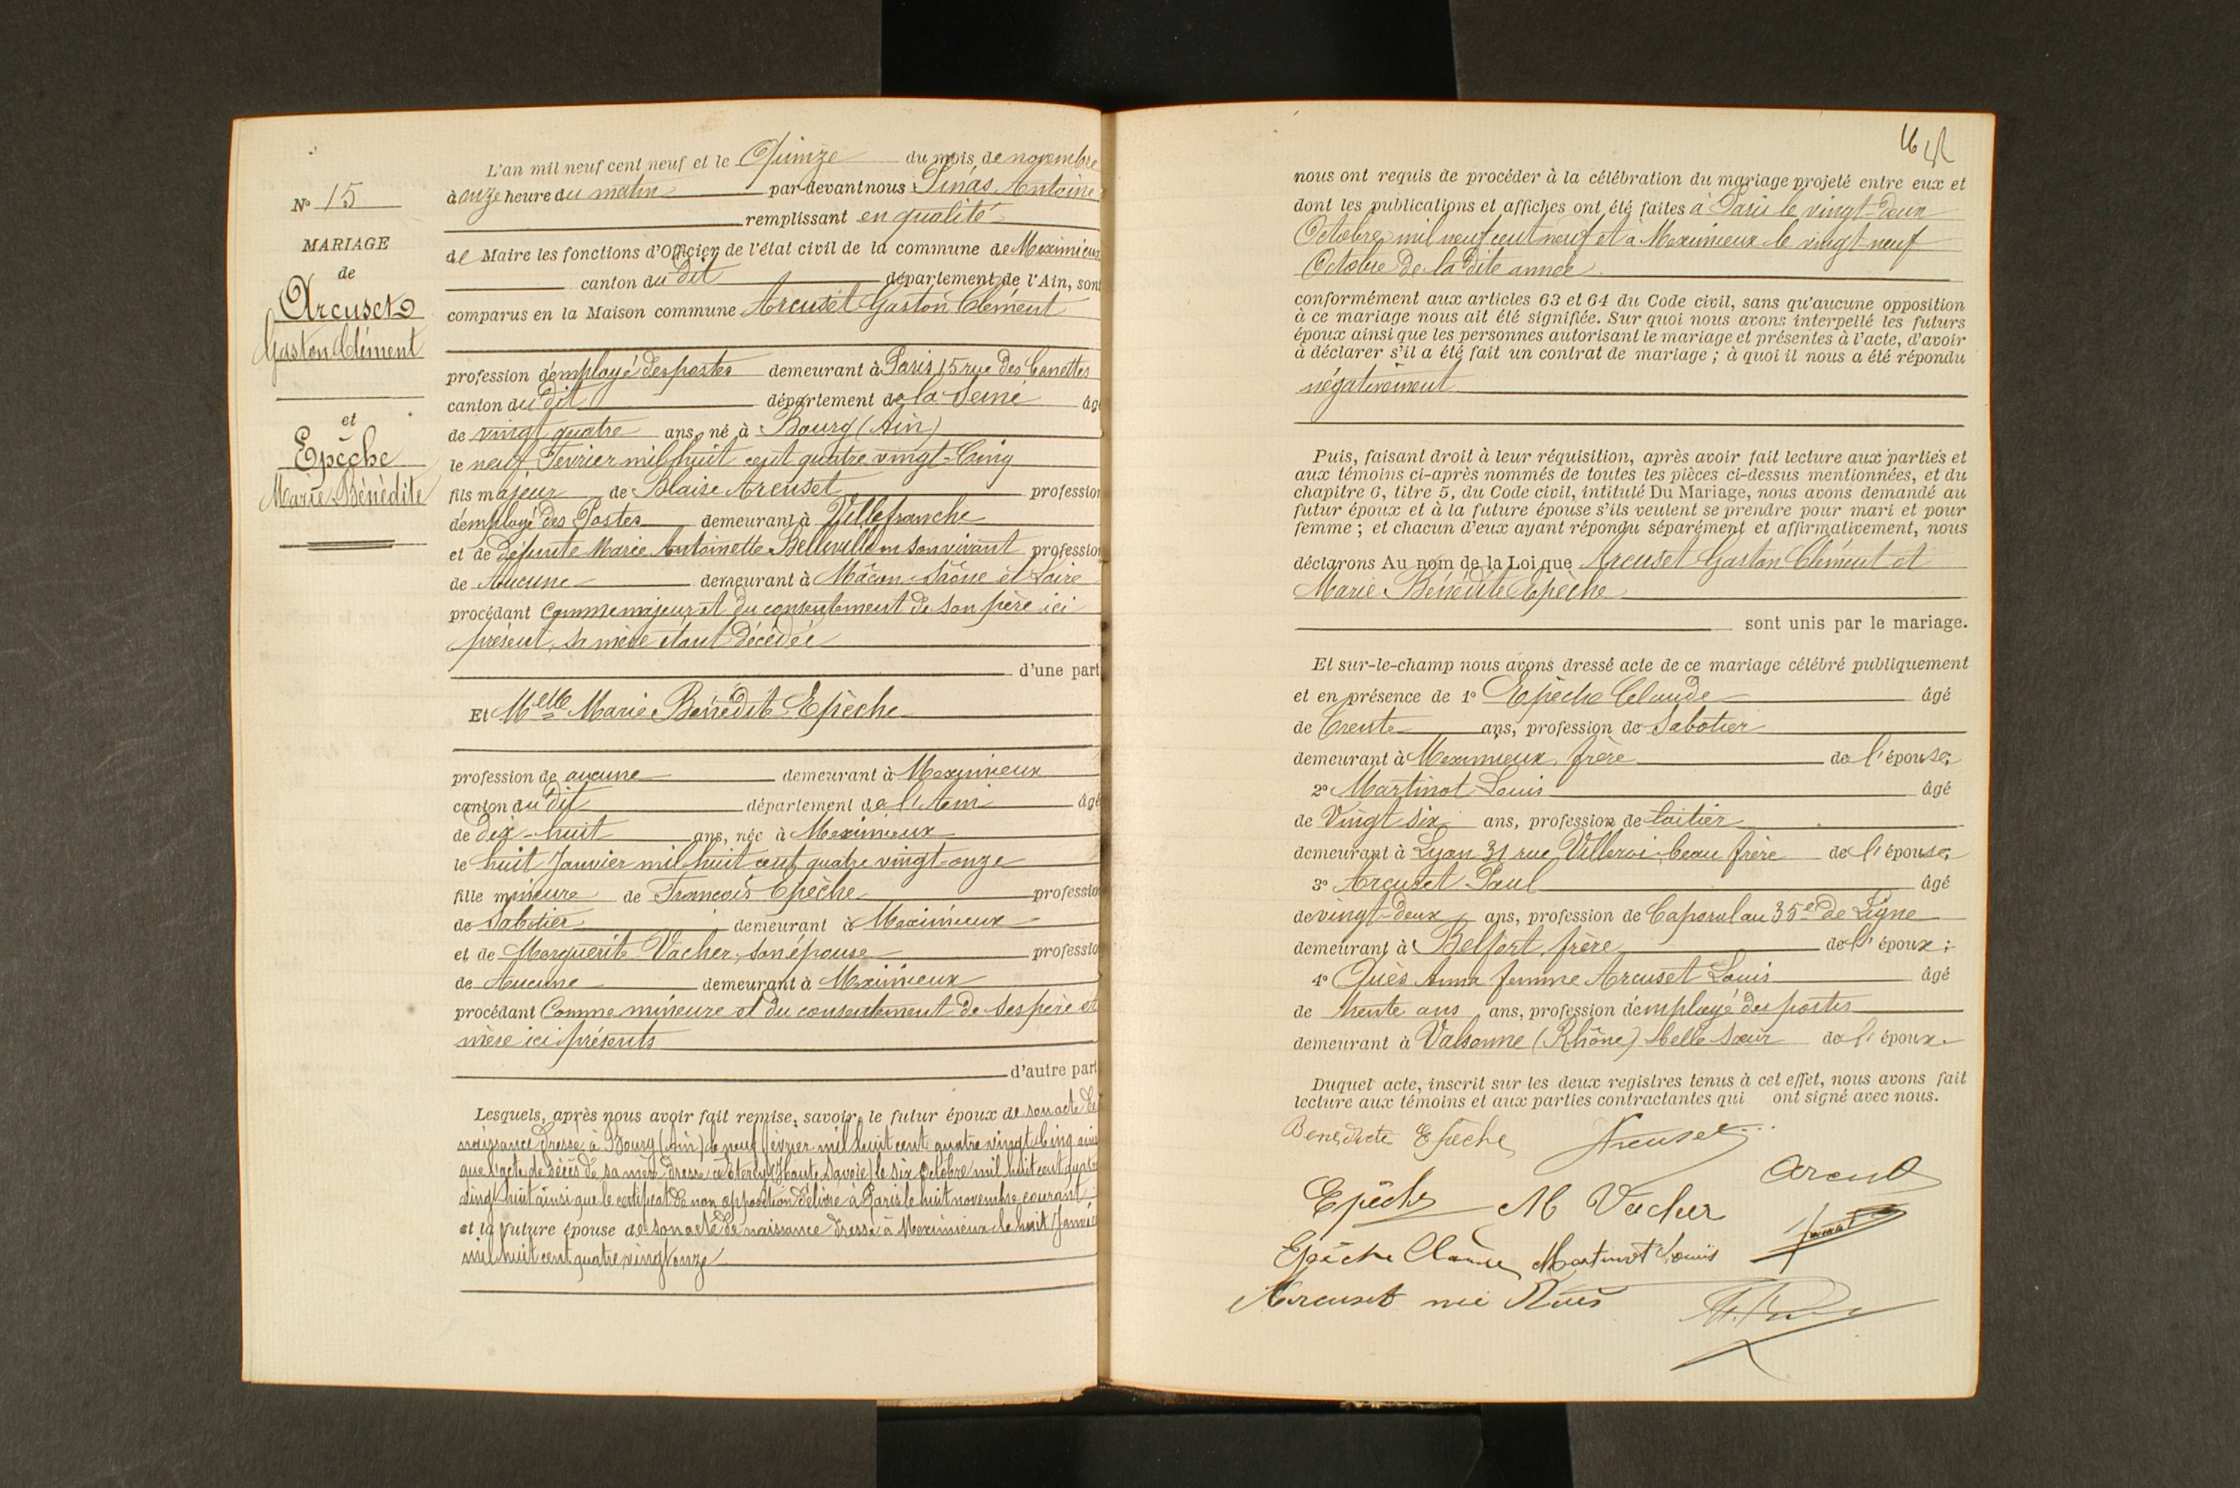 N° 15
MARIAGE
de
Arcuset
Gaston Clément
et
Epêche
Marie Bénédite
L'an mil neuf cent neuf et le Quinze du mois de novembre
à onze heure du matin par devant nous Pinás Antoine
remplissant en qualité
de Maire les fonctions d'Officier de l'état civil de la commune de Meximieux
canton du dit département de l'Ain, sont
comparus en la Maison commune Arcuset Gaston Clément
profession d'employé des postes demeurant à Paris, 15 rue des Canettes
canton du dit département de la Seine âgé
de vingt quatre ans, né à Bourg (Ain)
le neuf Février mil huit cent quatre vingt-Cinq
fils majeur de Blaise Arcuset profession
d'employé des Postes demeurant à Villefranche
et de défunte Marie Antoinette Belleville en son vivant profession
de Aucune demeurant à Mâcon Saône et Loire
procédant Comme majeur et du consentement de son père ici
présent, sa mère étant décédée
d'une part
Et Melle Marie Bénédite Epêche
profession de aucune demeurant à Meximieux
canton du dit département de l'Ain âgé
de dix-huit ans, née à Meximieux
le huit Janvier mil huit cent quatre vingt-onze
fille mineure de François Epêche profession
de Sabotier demeurant à Meximieux
et de Marguerite Vacher, son épouse profession
de Aucune demeurant à Meximieux
procédant Comme mineure et du consentement de ses père et
mère ici présents
d'autre part
Lesquels, après nous avoir fait remise, savoir, le futur époux de son acte de
naissance dressé à Bourg (Ain) le neuf Février mil huit cent quatre vingt Cinq ainsi
que l'acte de décès de sa mère dressé (Haute Savoie) le six Octobre mil huit cent quatre
vingt huit ainsi que le certificat de non opposition délivré à Paris le huit novembre courant
et la future épouse de son acte de naissance dressé à Meximieux le huit Janvier
mil huit cent quatre vingt onze
nous ont requis de procéder à la célébration du mariage projeté entre eux et
dont les publications et affiches ont été faites à Paris le vingt-deux
Octobre mil neuf cent neuf et à Meximieux le vingt neuf
Octobre de la dite année
conformément aux articles 63 et 64 du Code civil, sans qu'aucune opposition
à ce mariage nous ait été signifiée. Sur quoi nous avons interpellé les futurs
époux ainsi que les personnes autorisant le mariage et présentes à l'acte, d'avoir
à déclarer s'il a été fait un contrat de mariage ; à quoi il nous a été répondu
négativement
Puis, faisant droit à leur réquisition, après avoir fait lecture aux parties et
aux témoins ci-après nommés de toutes les pièces ci-dessus mentionnées, et du
chapitre 6, titre 5, du Code civil, intitulé Du Mariage, nous avons demandé au
futur époux et à la future épouse s'ils veulent se prendre pour mari et pour
femme ; et chacun d'eux ayant répondu séparément et affirmativement, nous
déclarons Au nom de la Loi que Arcuset Gaston Clément et
Marie Bénédite Epêche
sont unis par le mariage.
Et sur-le-champ nous avons dressé acte de ce mariage célébré publiquement
et en présence de 1° Epêche Claude âgé
de trente ans, profession de Sabotier
demeurant à Meximieux, frère de l'épouse;
2° Martinot Louis âgé
de Vingt six ans, profession de laitier
demeurant à Lyon 31 rue Villeroi, beau frère de l'épouse;
3° Arcuset Paul âgé
de vingt-deux ans, profession de Caporal au 35e de Ligne
demeurant à Belfort, frère de l'époux;
4° Quès Anna femme Arcuset Louis âgé
de trente ans ans, profession d'employé des postes
demeurant à Valsonne (Rhône) belle sœur de l'époux
Duquel acte, inscrit sur les deux registres tenus à cet effet, nous avons fait
lecture aux témoins et aux parties contractantes qui ont signé avec nous.
Benedicte Epêche Arcuset
Epêche M Vacher Arcuset
Epêche Claude Martinot Louis
Arcuset née Quès